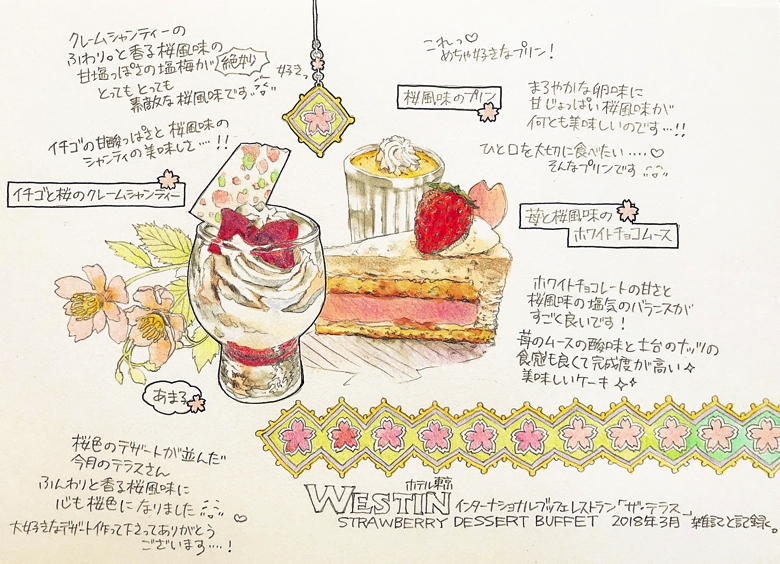 クレームシャンティーの
ふわり。と香る桜風味の
甘塩っぱさの塩梅が 絶妙
とってもとっても
素敵な桜風味です
好きっ
イチゴの甘酸っぱさと桜風味の
シャンティの美味しさ····!!
イチゴと桜のクレームシャンティー
これっ♡
めちゃ好きなプリン!
桜風味のプリン
まろやかな卵味に
甘じょっぱい桜風味が
何とも美味しいのです···!!
ひと口を大切に食べたい····♡
そんなプリンです
苺と桜風味の
ホワイトチョコムース
ホワイトチョコレートの甘さと
桜風味の塩気のバランスが
すごく良いです!
苺のムースの酸味と土台のナッツの
食感も良くて完成度が高い
美味しいケーキ
あまろ
桜色のデザートが並んだ
今月のテラスさん
ふんわりと香る桜風味に
心も桜色になりました
大好きなデザート作って下さってありがとう
ございます····! ♡
ホテル東京
WESTIN インターナショナルブッフェレストラン「ザ・テラス」
STRAWBERRY DESSERT BUFFET 2018年3月 雑記と記録。